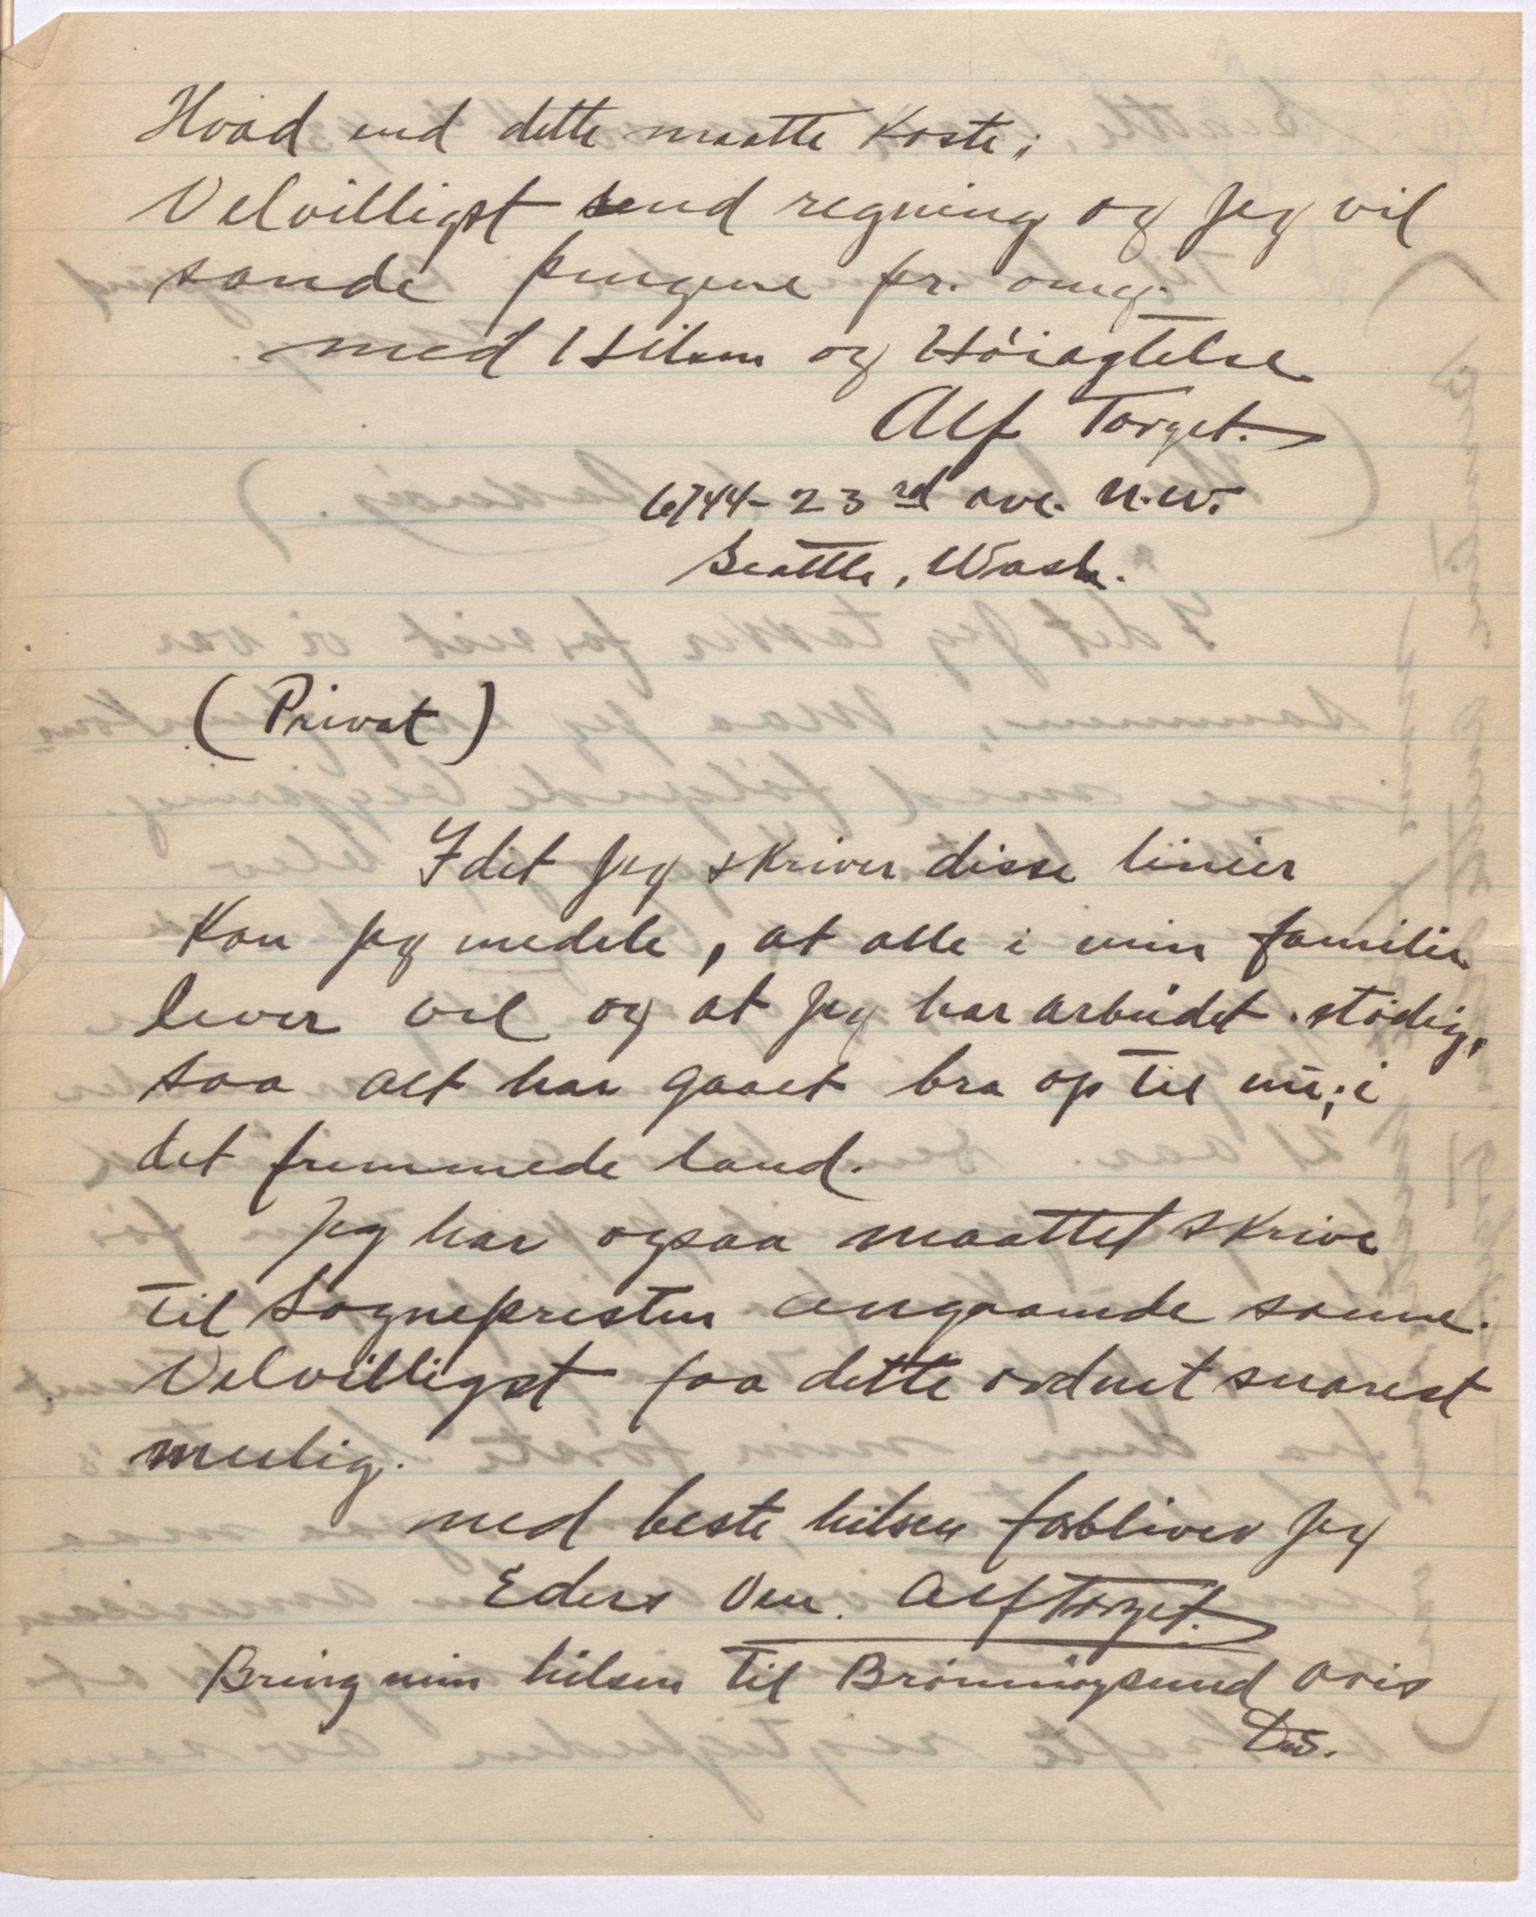 Hvad end dette maatte Koste;
Velvilligst send regning og Jeg vil
sende pengene pr. omg.
med Hilsen og Høiagtelse
Alf Torget.
6744-23rd ave. N.W.
Seattle, Wash.
(Privat)
Idet Jeg skriver disse linier
Kan Jeg medele, at alle i min familie
lever vel og at Jeg har arbeidet stødig,
saa alt har gaaet bra op til nu; i
det fremmede land.
Jeg har ogsaa maattet skrive
til Sognepresten angaaende samme.
Velvilligst faa dette ordnet snarest
mulig.
med beste hilsen forbliver Jeg
Eders Ven. Alf Torget.
Bring min hilsen til Brønnøysund Avis
D.S.